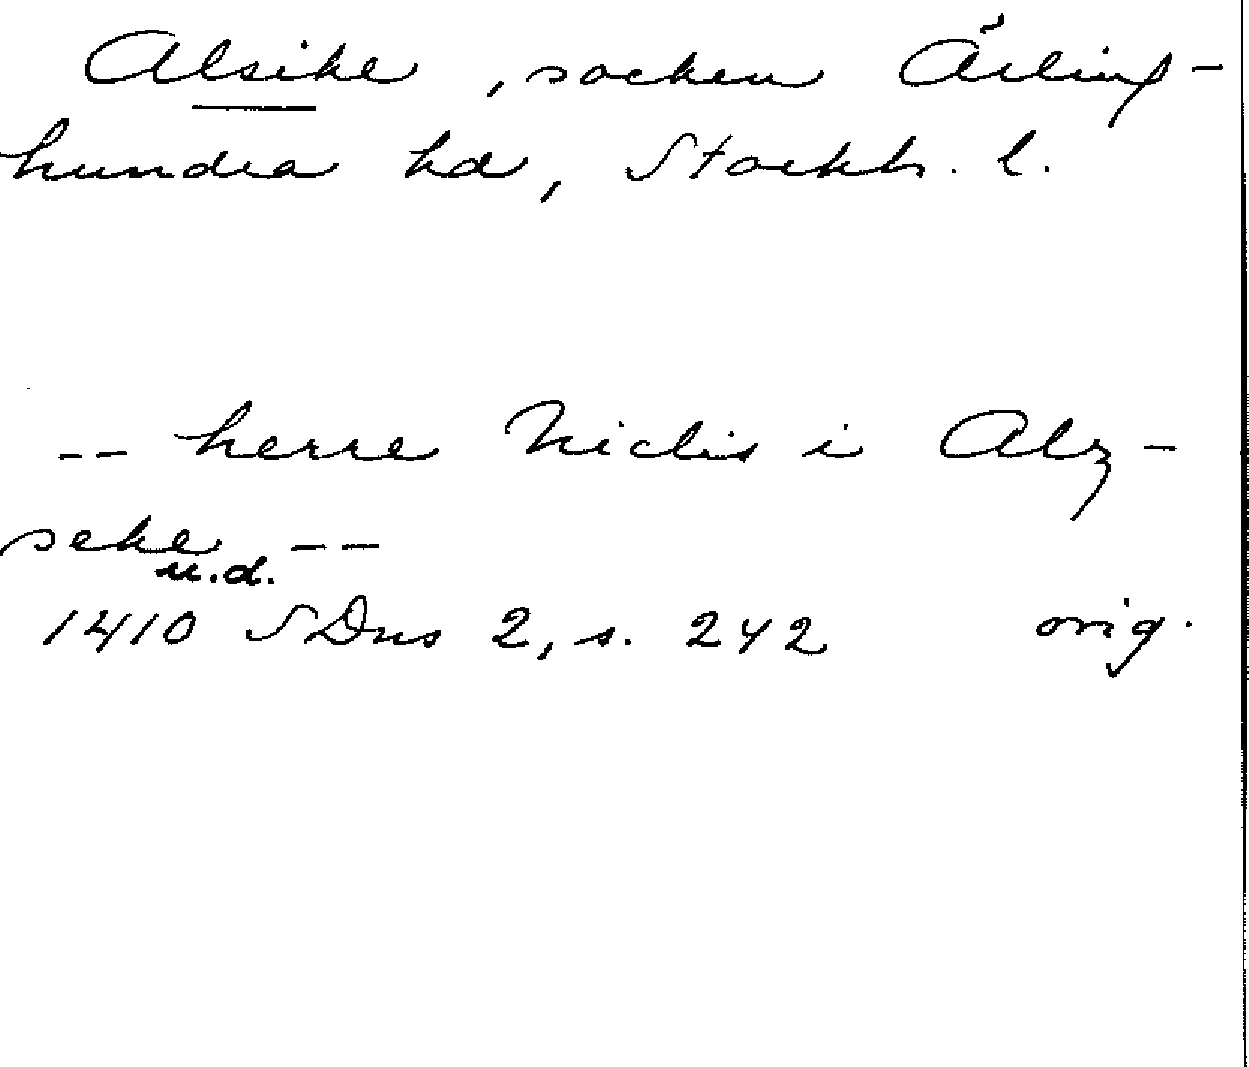 Alsike, socken Ärling-
hundra hd, Stockh. l.
-- herre Niclis i Alz-
seke --
u.d.
1410 SDns 2, s. 242 orig.